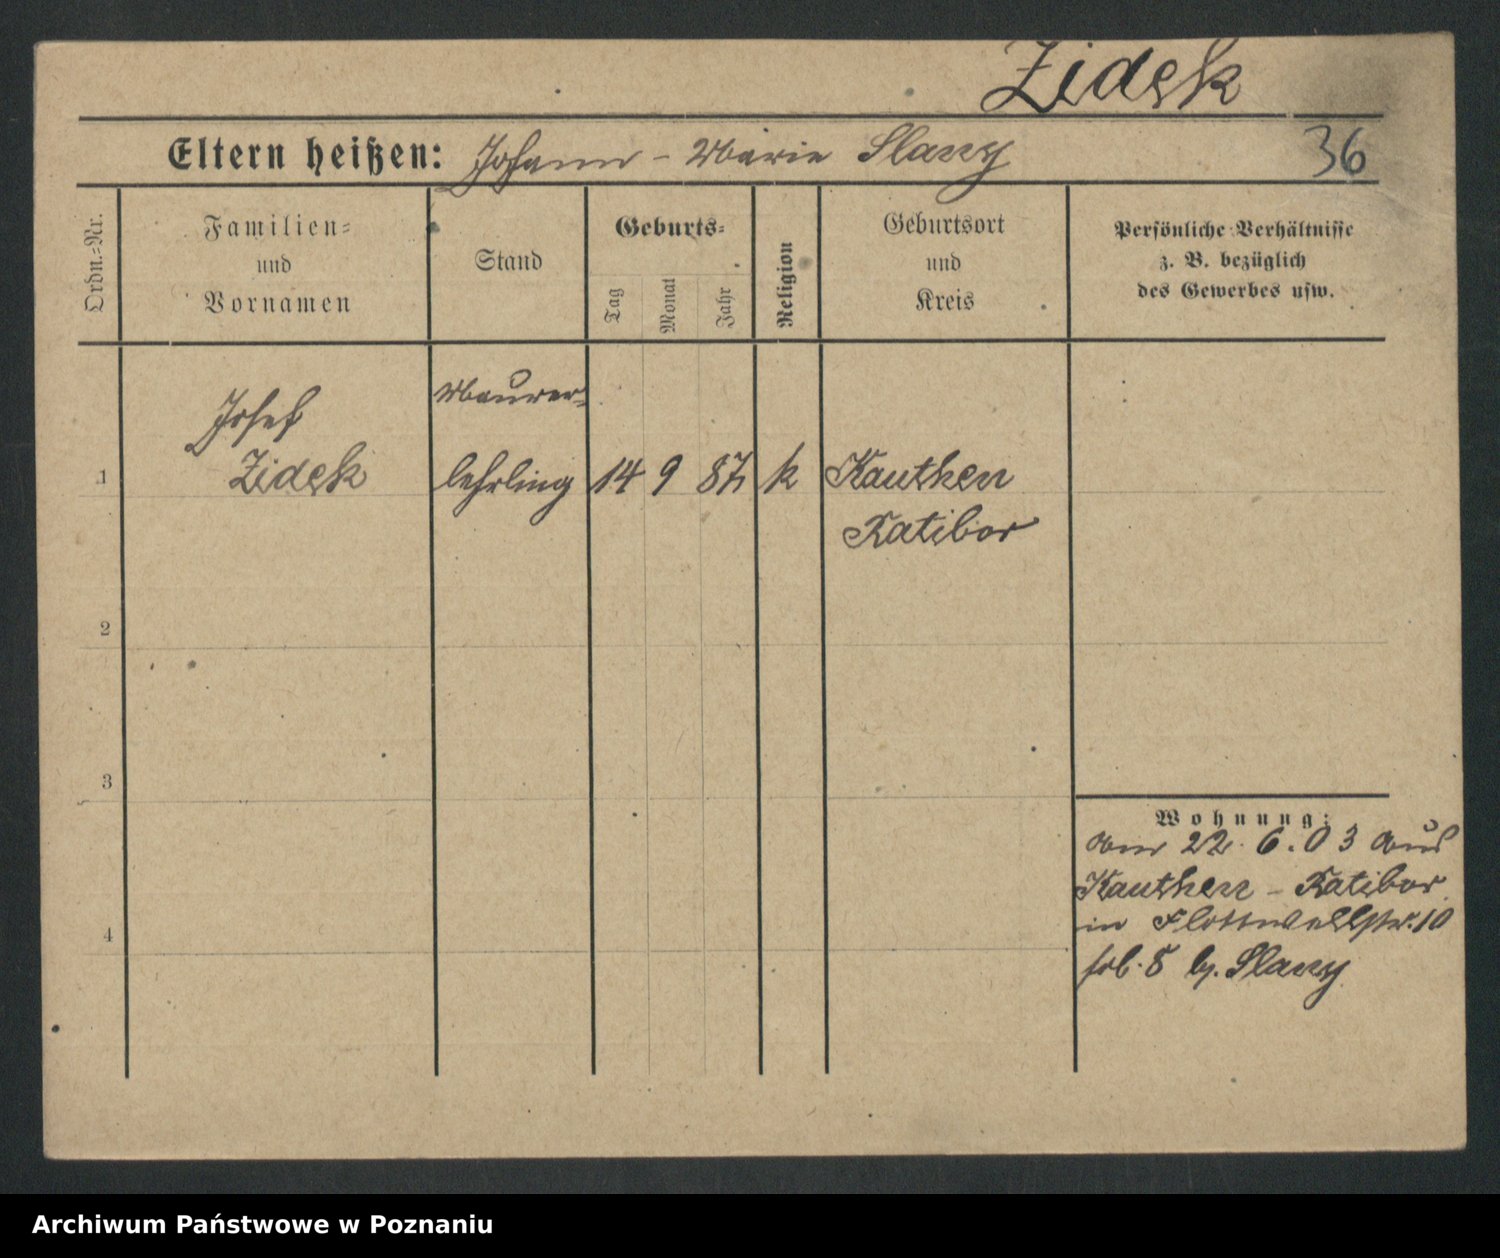 Zidek
Eltern heißen: Johann - Marie Slany
36
Ordn.-Nr.
Familien-
und
Vornamen
Stand
Geburts-
Tag
Monat
Jahr
Religion
Geburtsort
und
Kreis
Persönliche Verhältnisse
z. B. bezüglich
des Gewerbes usw.
Josef
Maurer-
1 Zidek lehrling 14 9 87 k Kauthen
Ratibor
2
3
Wohnung:
am 22. 6. 03 aus
Kauthen - Ratibor
4
in Flottwellstr. 10
b. Slany
Archiwum Państwowe w Poznaniu